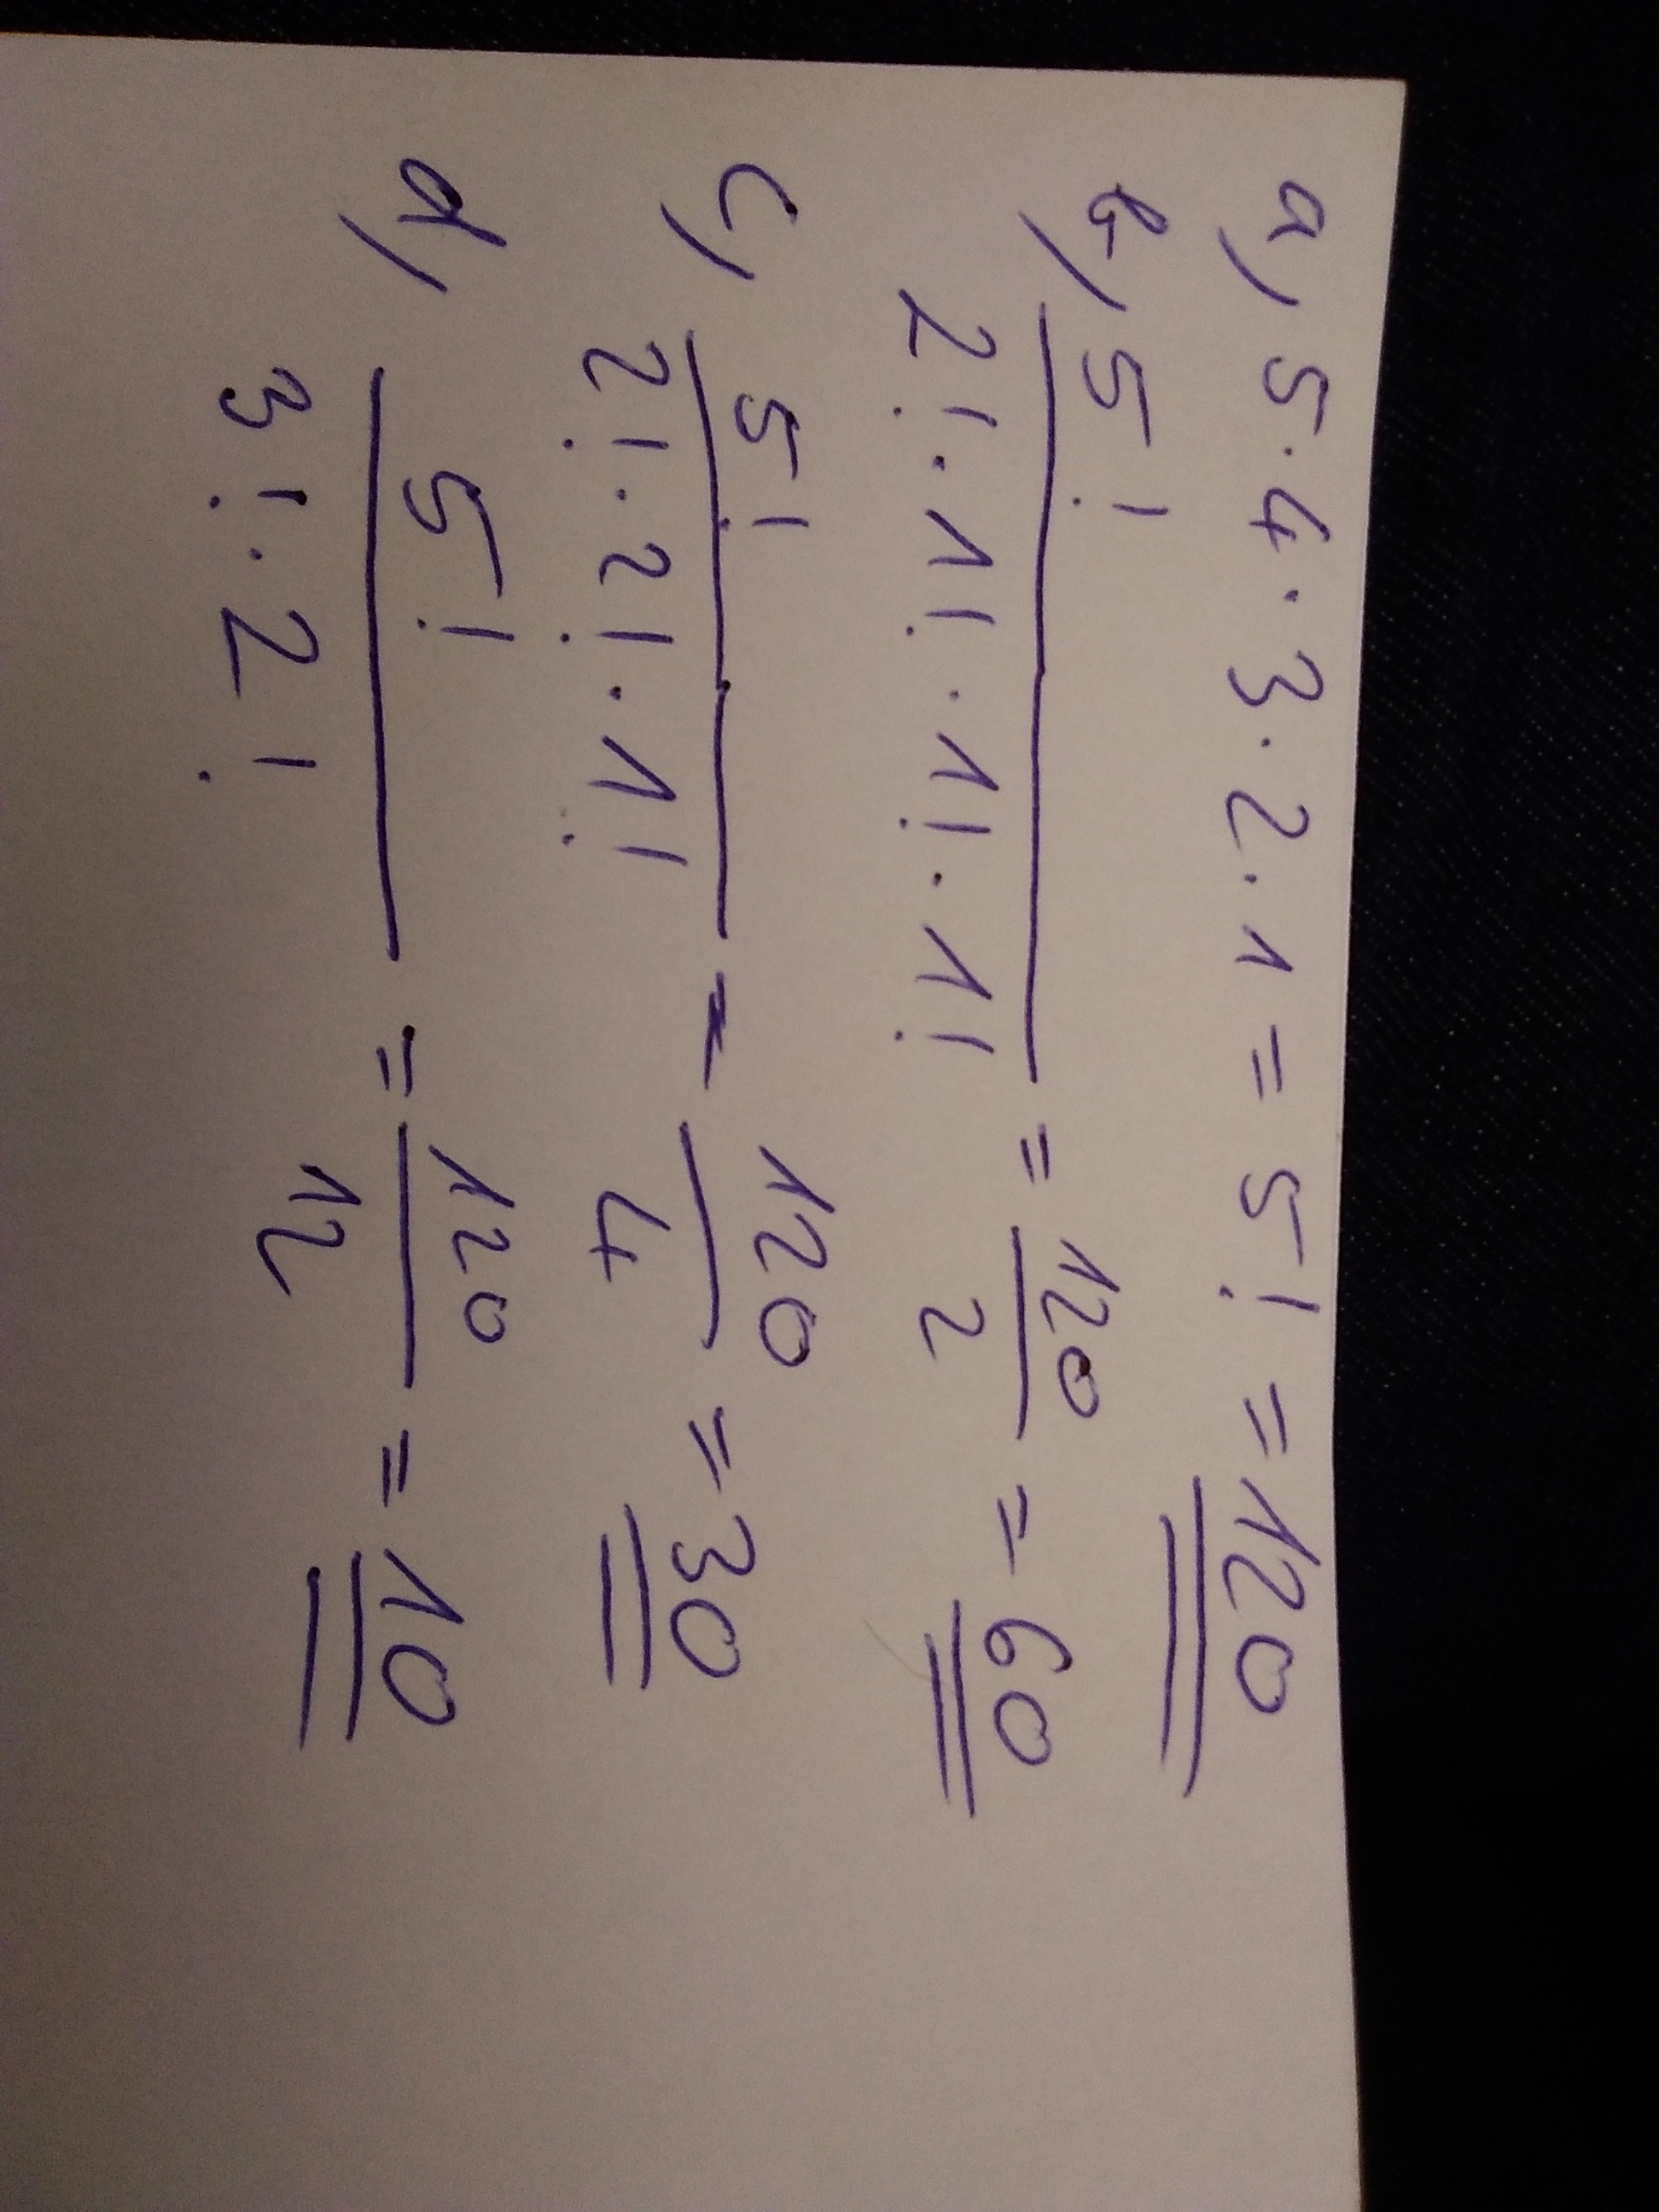 a) 5·4·3·2·1 = 5! = 120
b) 5! / 2!·1!·1!·1! = 120 / 2 = 60
c) 5! / 2!·2!·1! = 120 / 4 = 30
d) 5! / 3!·2! = 120 / 12 = 10